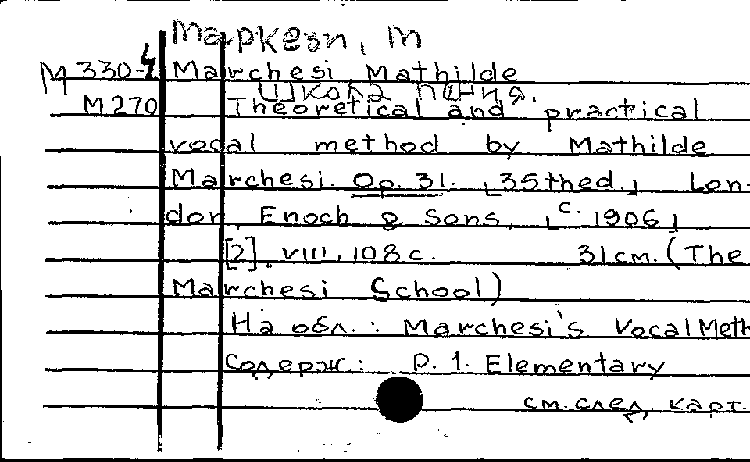 Маркези, М
М 330-4 Marchesi, Mathilde
Школа пения.
М270 Theoretical and practical
vocal method by Mathilde
Marchesi. Op. 31. [35thed.] Lon-
don, Enoch & Sons, [c. 1906]
[2], VIII, 108 c. 31 см. (The
Marchesi School)
На обл.: Marchesi's Vocal Meth
Содерж: P. 1. Elementary
см. след. карт.